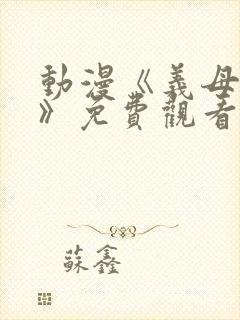 動漫《義母
》免費觀看
蘇鑫